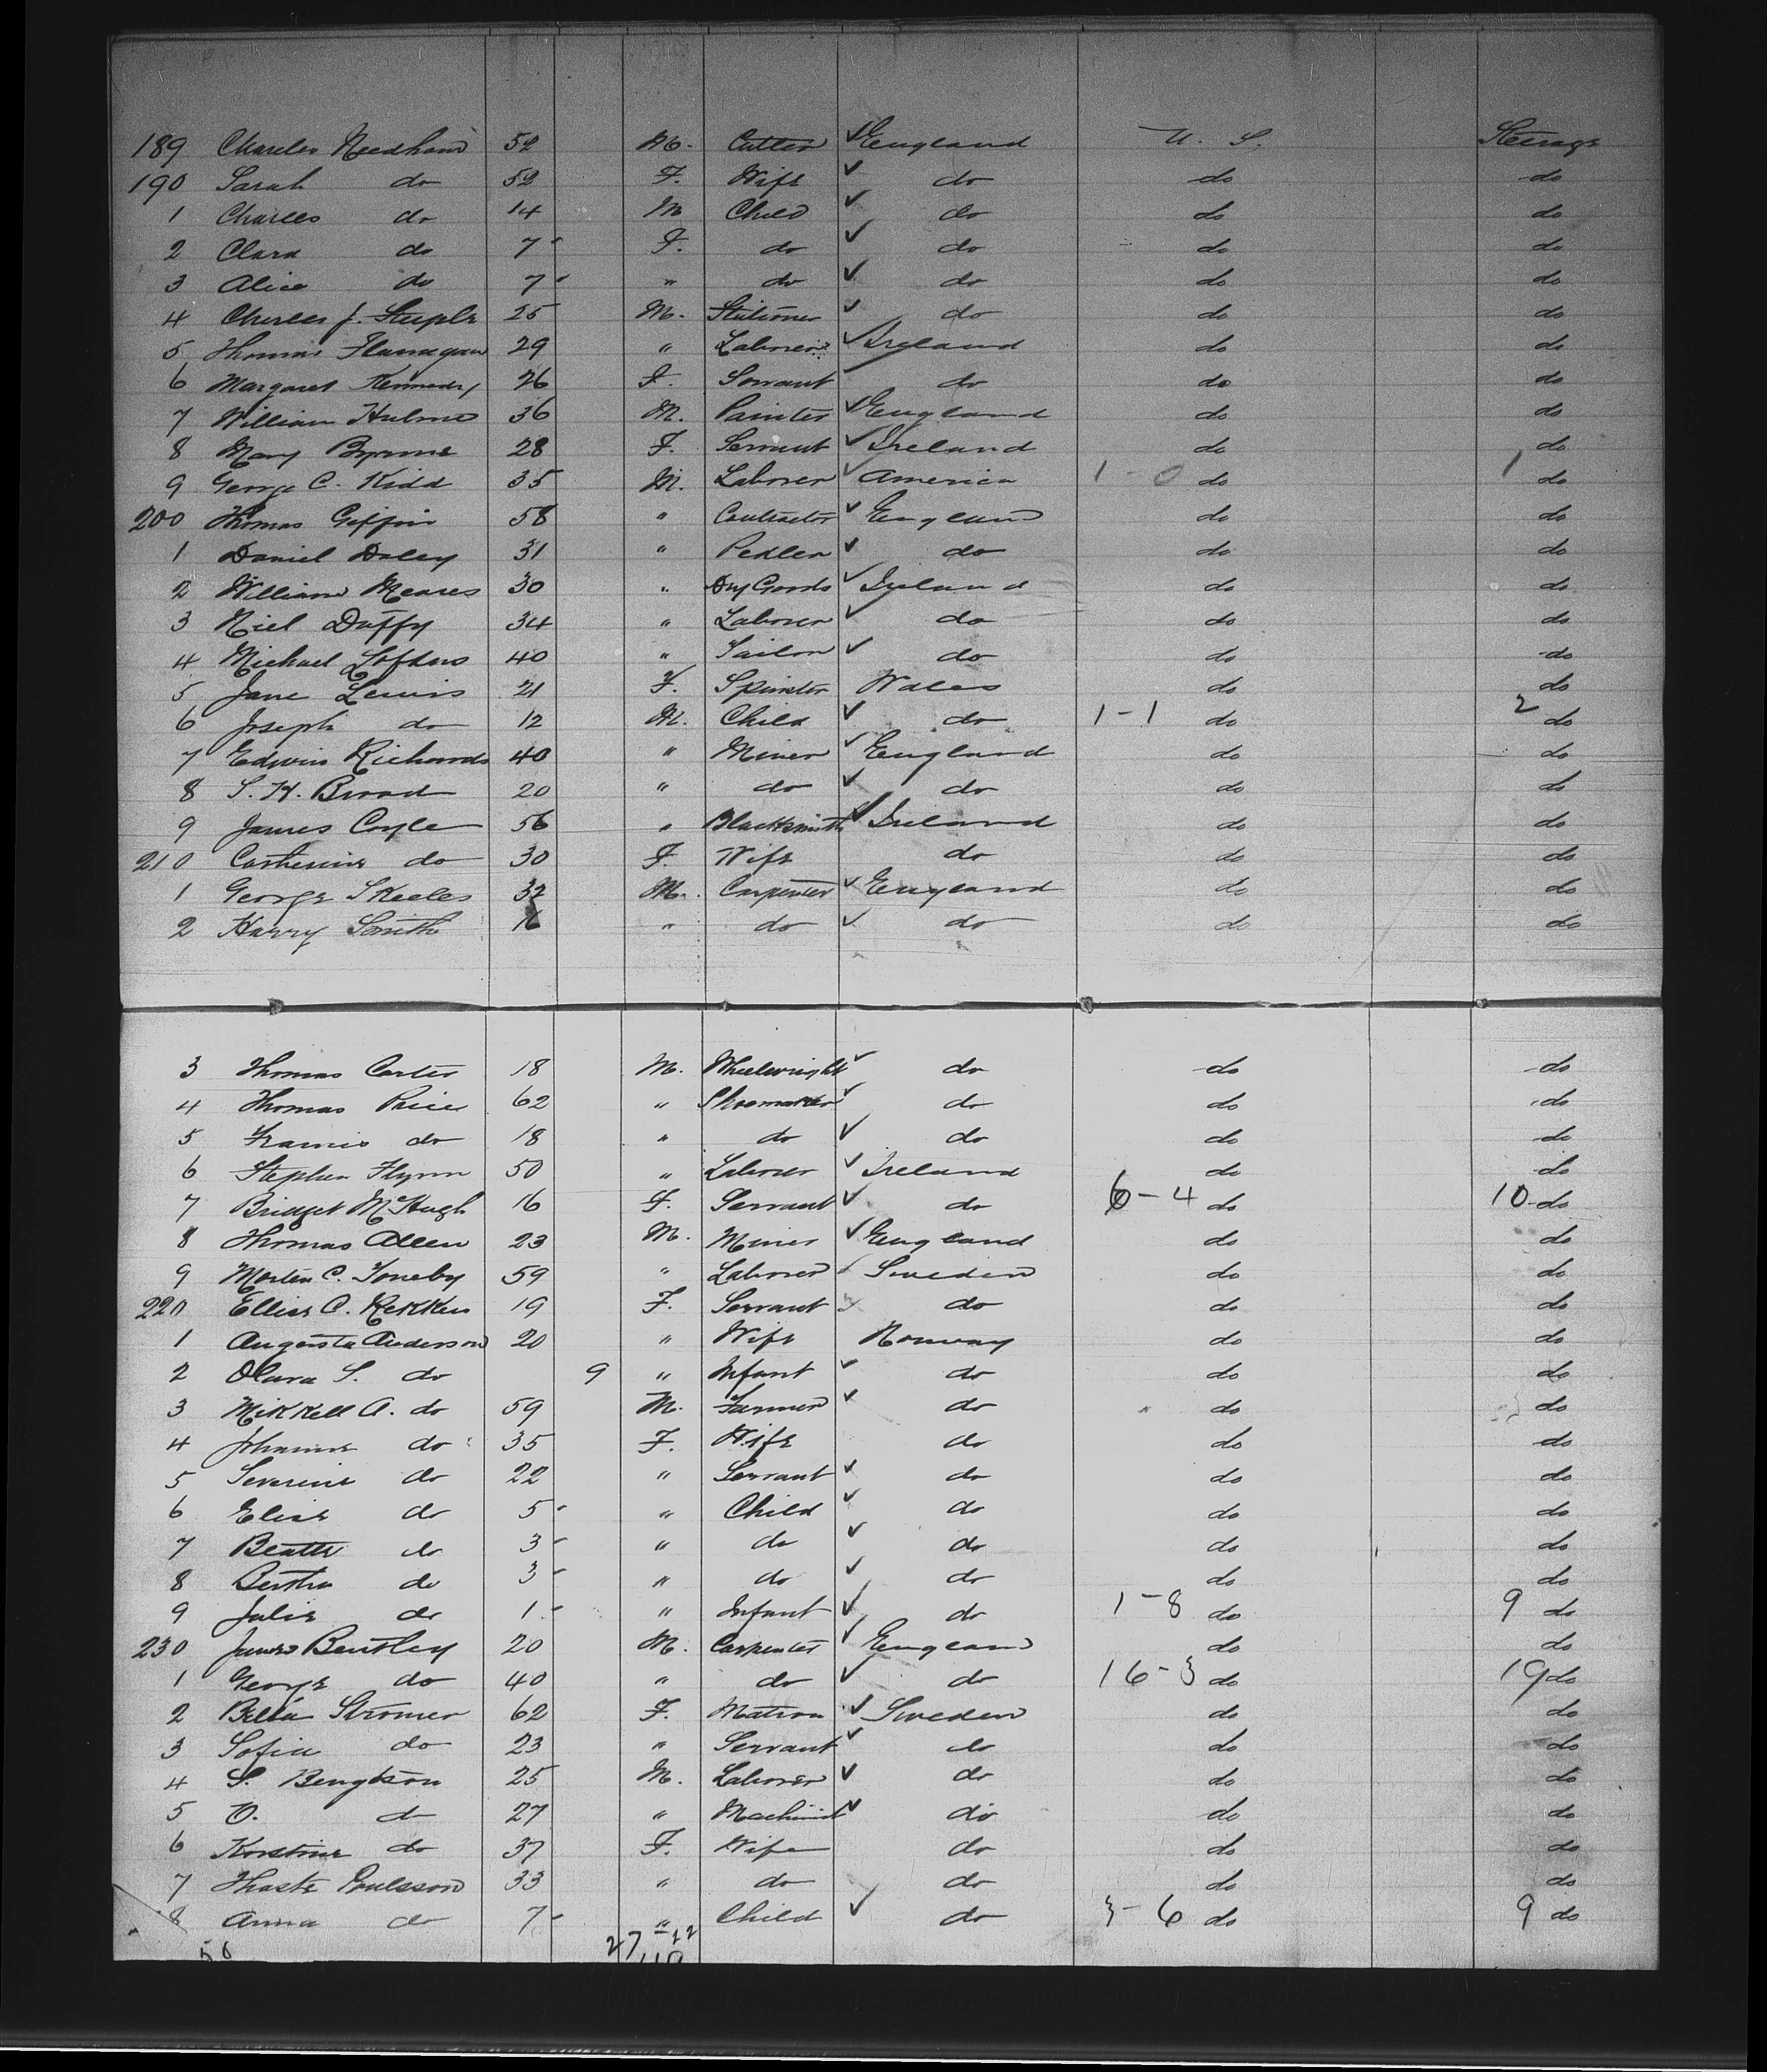 189 Charles Needham 52 M. Cutter ✓ England U. S. Steerage
190 Sarah do 52 F. Wife ✓ do do do
1 Charles do 14 M Child ✓ do do do
2 Clara do 7 F. do ✓ do do do
3 Alice do 7 " do ✓ do do do
4 Charles J. Steeple 25 M. Stationer ✓ do do do
5 Thomas Flanagan 29 " Laborer ✓ Ireland do do
6 Margaret Kennedy 26 F. Servant do do do
7 William Hulme 36 M. Painter ✓ England do do
8 Mary Byrne 28 F. Servant ✓ Ireland do do
9 George C. Kidd 35 M. Laborer ✓ America 1 - 0 do 1 do
200 Thomas Giffin 58 " Contractor ✓ England do do
1 Daniel Daley 31 " Pedler ✓ do do do
2 William Meares 30 " Dry Goods ✓ Ireland do do
3 Niel Duffy 34 " Laborer ✓ do do do
4 Michael Loftus 40 " Tailor ✓ do do do
5 Jane Lewis 21 F. Spinster Wales do do
6 Joseph do 12 M. Child ✓ do 1-1 do 2 do
7 Edwin Richards 40 " Miner ✓ England do do
8 S. H. Broad 20 " do ✓ do do do
9 James Coyle 56 " Blacksmith ✓ Ireland do do
210 Catherine do 30 F. Wife do do do
1 George Skeeles 32 M. Carpenter ✓ England do do
2 Harry Smith 16 " do ✓ do do do
3 Thomas Carter 18 M. Wheelwright ✓ do do do
4 Thomas Price 62 " Shoemaker ✓ do do do
5 Francis do 18 " do ✓ do do do
6 Stephen Flynn 50 " Laborer ✓ Ireland do do
7 Bridget McHugh 16 F. Servant ✓ do 6-4 do 10 do
8 Thomas Allen 23 M. Miner ✓ England do do
9 Morten C. Toneby 59 " Laborer ✓ Sweden do do
220 Ellise C. Rekken 19 F. Servant ✓ do do do
1 Augusta Anderson 20 " Wife Norway do do
2 Olava S. do 9 " Infant ✓ do do do
3 Mikkell A. do 59 M. Farmer ✓ do do do
4 Johanne do 35 F. Wife do do do
5 Severine do 22 " Servant ✓ do do do
6 Elise do 5 " Child ✓ do do do
7 Beatte do 3 " do ✓ do do do
8 Bertha do 3 " do ✓ do do do
9 Julie do 1 " Infant ✓ do 1-8 do 9 do
230 James Bentley 20 M. Carpenter ✓ England do do
1 George do 40 " do ✓ do 16-3 do 19 do
2 Stromer 62 F. Matron ✓ Sweden do do
3 Sofia do 23 " Servant ✓ do do do
4 S. Bengtson 25 M. Laborer ✓ do do do
5 O. do 27 " Machinist ✓ do do do
6 do 37 F. Wife do do do
7 Poulsson 33 " do do do do
8 Anna do 7 " Child ✓ do 3-6 do 9 do
27-22